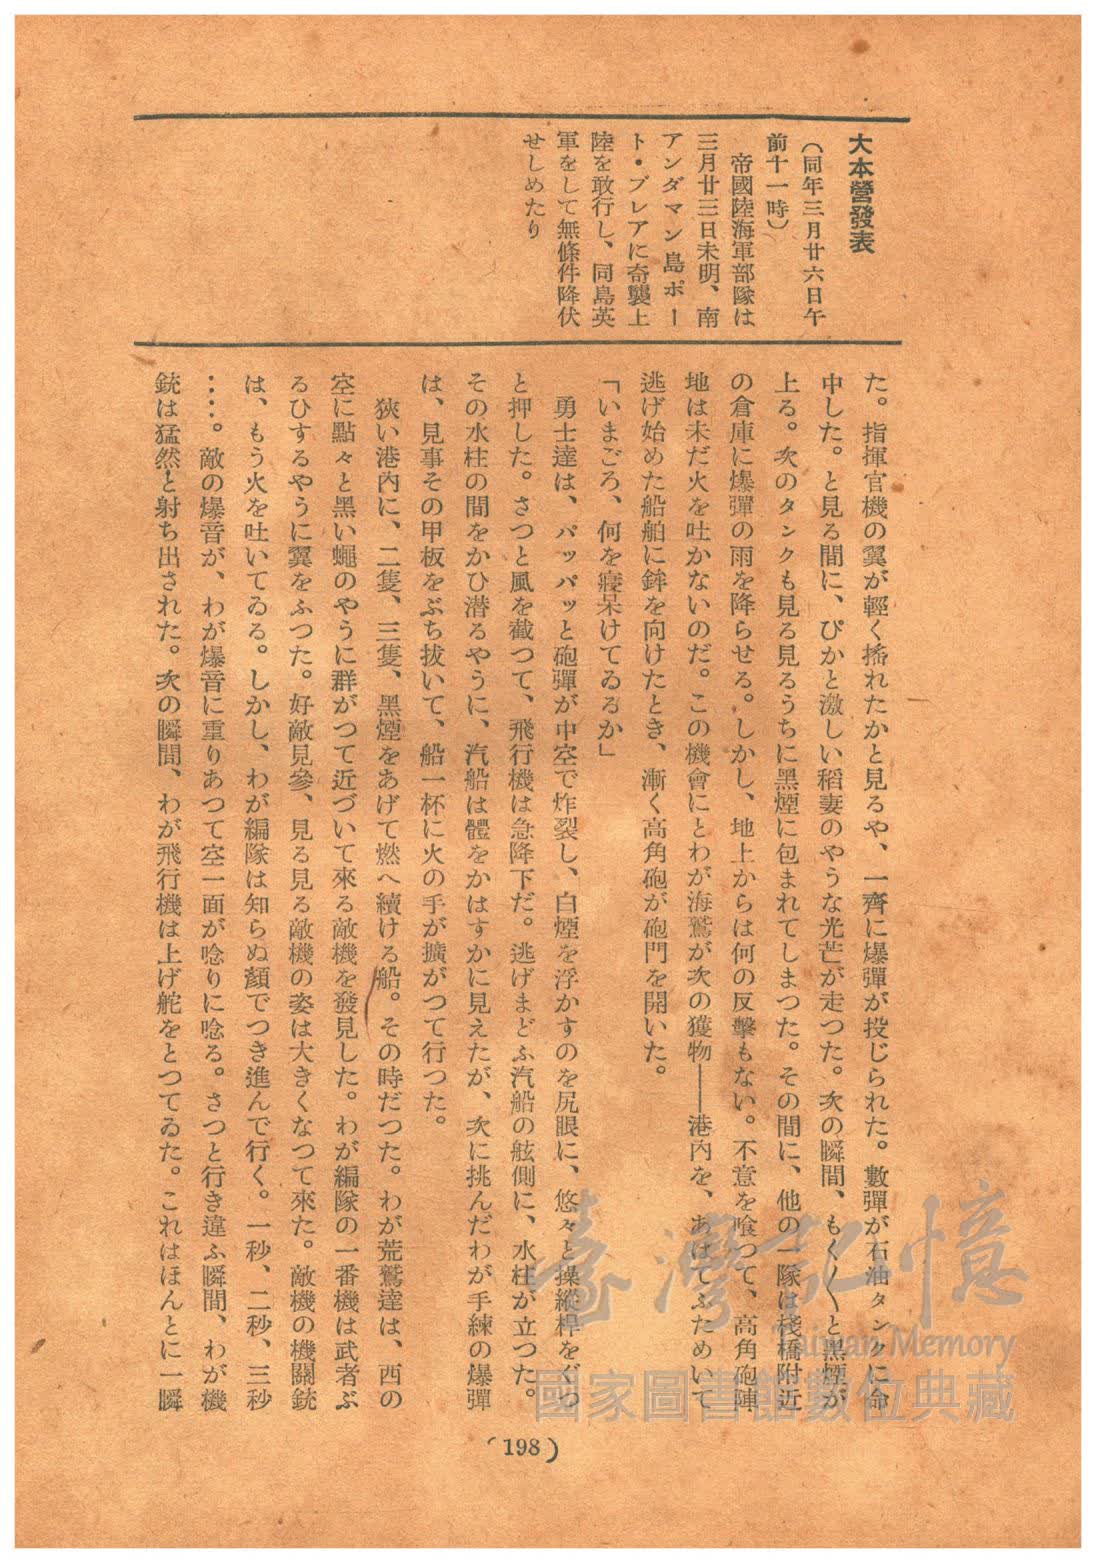 大本營發表
（同年三月廿六日午
前十一時）
帝國陸海軍部隊は
三月廿三日未明、南
アンダマン島ポー
ト・ブレアに奇襲上
陸を敢行し、同島英
軍をして無條件降伏
せしめたり
た。指揮官機の翼が輕く搖れたかと見るや、一齊に爆彈が投じられた。數彈が石油タンクに命
中した。と見る間に、ぴかと激しい稻妻のやうな光芒が走つた。次の瞬間、もく〱と黑煙が
上る。次のタンクも見る見るうちに黑煙に包まれてしまつた。その間に、他の一隊は棧橋附近
の倉庫に爆彈の雨を降らせる。しかし、地上からは何の反擊もない。不意を喰つて、高角砲陣
地は未だ火を吐かないのだ。この機會にとわが海鷲が次の獲物――港內を、あはてふためいて
逃げ始めた船舶に鉾を向けたとき、漸く高角砲が砲門を開いた。
「いまごろ、何を寢呆けてゐるか」
勇士達は、パッパッと砲彈が中空で炸裂し、白煙を浮かすのを尻眼に、悠々と操縱桿をぐつ
と押した。さつと風を截つて、飛行機は急降下だ。逃げまどふ汽船の舷側に、水柱が立つた。
その水柱の間をかひ潜るやうに、汽船は體をかはすかに見えたが、次に挑んだわが手練の爆彈
は、見事その甲板をぶち拔いて、船一杯に火の手が擴がつて行つた。
狹い港內に、二隻、三隻、黑煙をあげて燃へ續ける船。その時だつた。わが荒鷲達は、西の
空に點々と黑い蠅のやうに群がつて近づいて來る敵機を發見した。わが編隊の一番機は武者ぶ
るひするやうに翼をふつた。好敵見參、見る見る敵機の姿は大きくなつて來た。敵機の機關銃
は、もう火を吐いてゐる。しかし、わが編隊は知らぬ顏でつき進んで行く。一秒、二秒、三秒
‥‥。敵の爆音が、わが爆音に重りあつて空一面が唸りに唸る。さつと行き違ふ瞬間、わが機
銃は猛然と射ち出された。次の瞬間、わが飛行機は上げ舵をとつてゐた。これはほんとに一瞬
(198)
臺灣記憶
Taiwan Memory
國家圖書館數位典藏